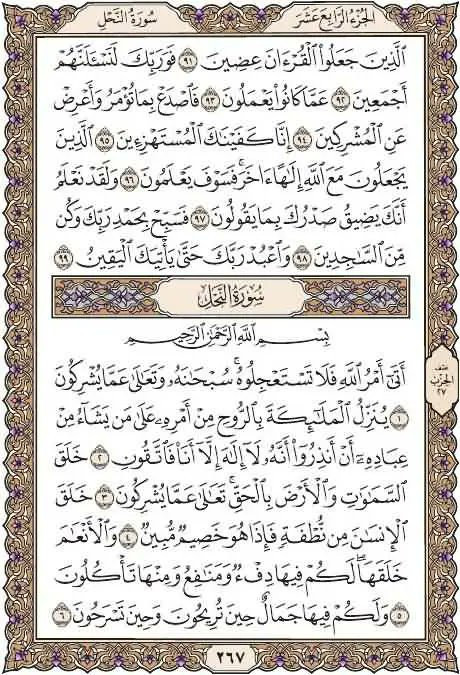 الجزء الرابع عشر
سورة النحل
الَّذِينَ جَعَلُوا الْقُرْءَانَ عِضِينَ ٩١ فَوَرَبِّكَ لَنَسْـَٔلَنَّهُمْ
أَجْمَعِينَ ٩٢ عَمَّا كَانُوا يَعْمَلُونَ ٩٣ فَاصْدَعْ بِمَا تُؤْمَرُ وَأَعْرِضْ
عَنِ الْمُشْرِكِينَ ٩٤ إِنَّا كَفَيْنَٰكَ الْمُسْتَهْزِءِينَ ٩٥ الَّذِينَ
يَجْعَلُونَ مَعَ اللَّهِ إِلَٰهًا ءَاخَرَ ۚ فَسَوْفَ يَعْلَمُونَ ٩٦ وَلَقَدْ نَعْلَمُ
أَنَّكَ يَضِيقُ صَدْرُكَ بِمَا يَقُولُونَ ٩٧ فَسَبِّحْ بِحَمْدِ رَبِّكَ وَكُن
مِّنَ السَّٰجِدِينَ ٩٨ وَاعْبُدْ رَبَّكَ حَتَّىٰ يَأْتِيَكَ الْيَقِينُ ٩٩
سورة النحل
بِسْمِ اللَّهِ الرَّحْمَٰنِ الرَّحِيمِ
أَتَىٰٓ أَمْرُ اللَّهِ فَلَا تَسْتَعْجِلُوهُ ۚ سُبْحَٰنَهُۥ وَتَعَٰلَىٰ عَمَّا يُشْرِكُونَ
١ يُنَزِّلُ الْمَلَٰٓئِكَةَ بِالرُّوحِ مِنْ أَمْرِهِۦ عَلَىٰ مَن يَشَآءُ مِنْ
عِبَادِهِۦٓ أَنْ أَنذِرُوٓا أَنَّهُۥ لَآ إِلَٰهَ إِلَّآ أَنَا۠ فَاتَّقُونِ ٢ خَلَقَ
السَّمَٰوَٰتِ وَالْأَرْضَ بِالْحَقِّ ۚ تَعَٰلَىٰ عَمَّا يُشْرِكُونَ ٣ خَلَقَ
الْإِنسَٰنَ مِن نُّطْفَةٍ فَإِذَا هُوَ خَصِيمٌ مُّبِينٌ ٤ وَالْأَنْعَٰمَ
خَلَقَهَا ۗ لَكُمْ فِيهَا دِفْءٌ وَمَنَٰفِعُ وَمِنْهَا تَأْكُلُونَ
٥ وَلَكُمْ فِيهَا جَمَالٌ حِينَ تُرِيحُونَ وَحِينَ تَسْرَحُونَ ٦
نصف
الحزب
٢٧
٢٦٧